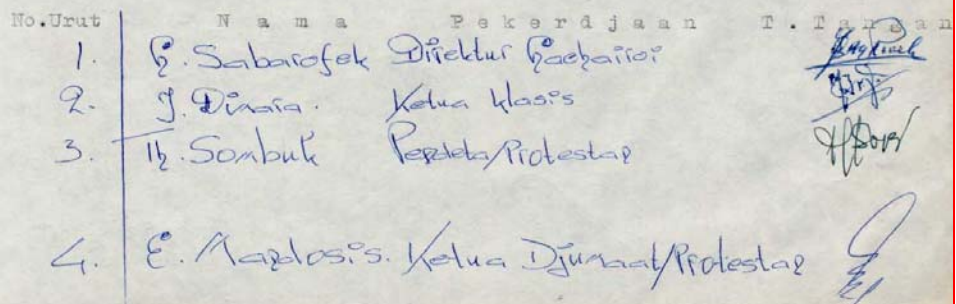 No.Urut N a m a P e k e r d j a a n T . T a n g a n
1. Sabarofek Direktur
2. J. Dimara. Ketua klasis
3. Th. Sombuk Pendeta/Protestan
4. E. Mandosis. Ketua Djumaat/Protestan